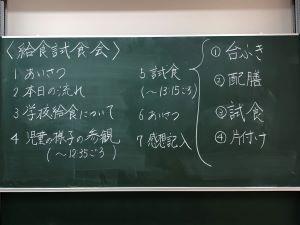 〈給食試食会〉
1 あいさつ
2 本日の流れ
3 学校給食について
4 児童の様子の参観
(〜12:35ごろ)
5 試食
(〜13:15ごろ)
6 あいさつ
7 感想記入
① 台ふき
② 配膳
③ 試食
④ 片付け